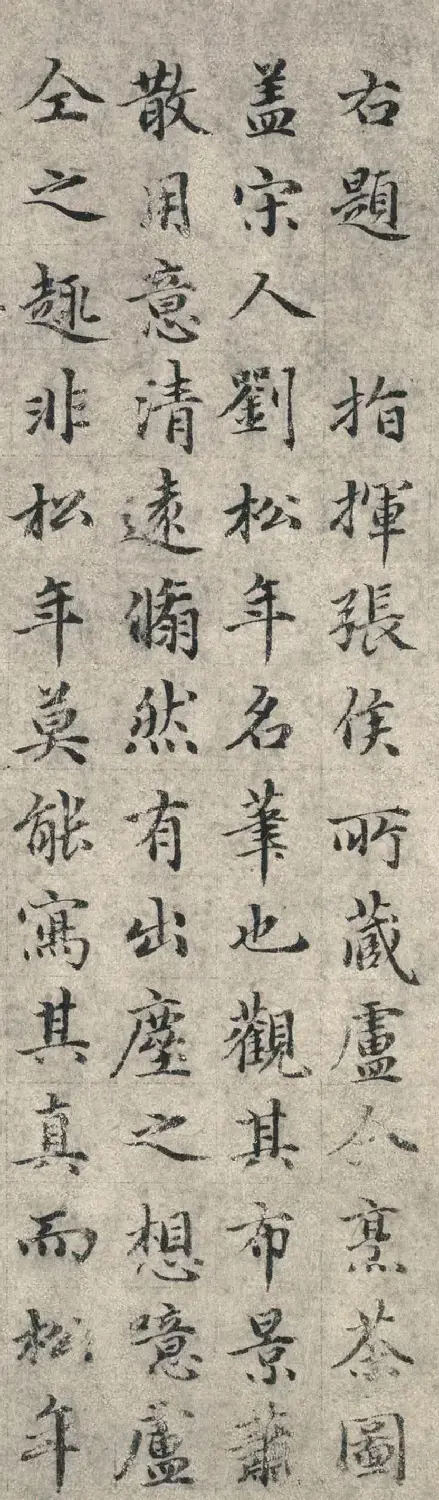 右題 指揮張侯所蔵盧仝烹茶圖
盖宋人劉松年名筆也觀其布景蕭
散用意清遠翛然有出塵之想噫盧
仝之趣非松年莫能寫其真而松年